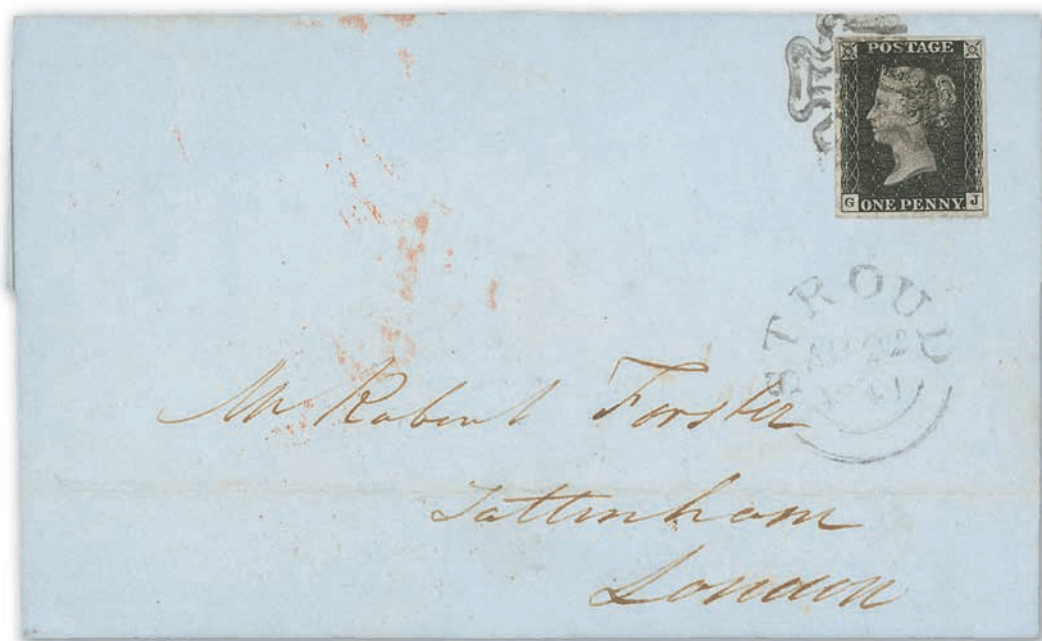 POSTAGE
G ONE PENNY. J
STROUD
22
Mr Robert Forster
Tottenham
London